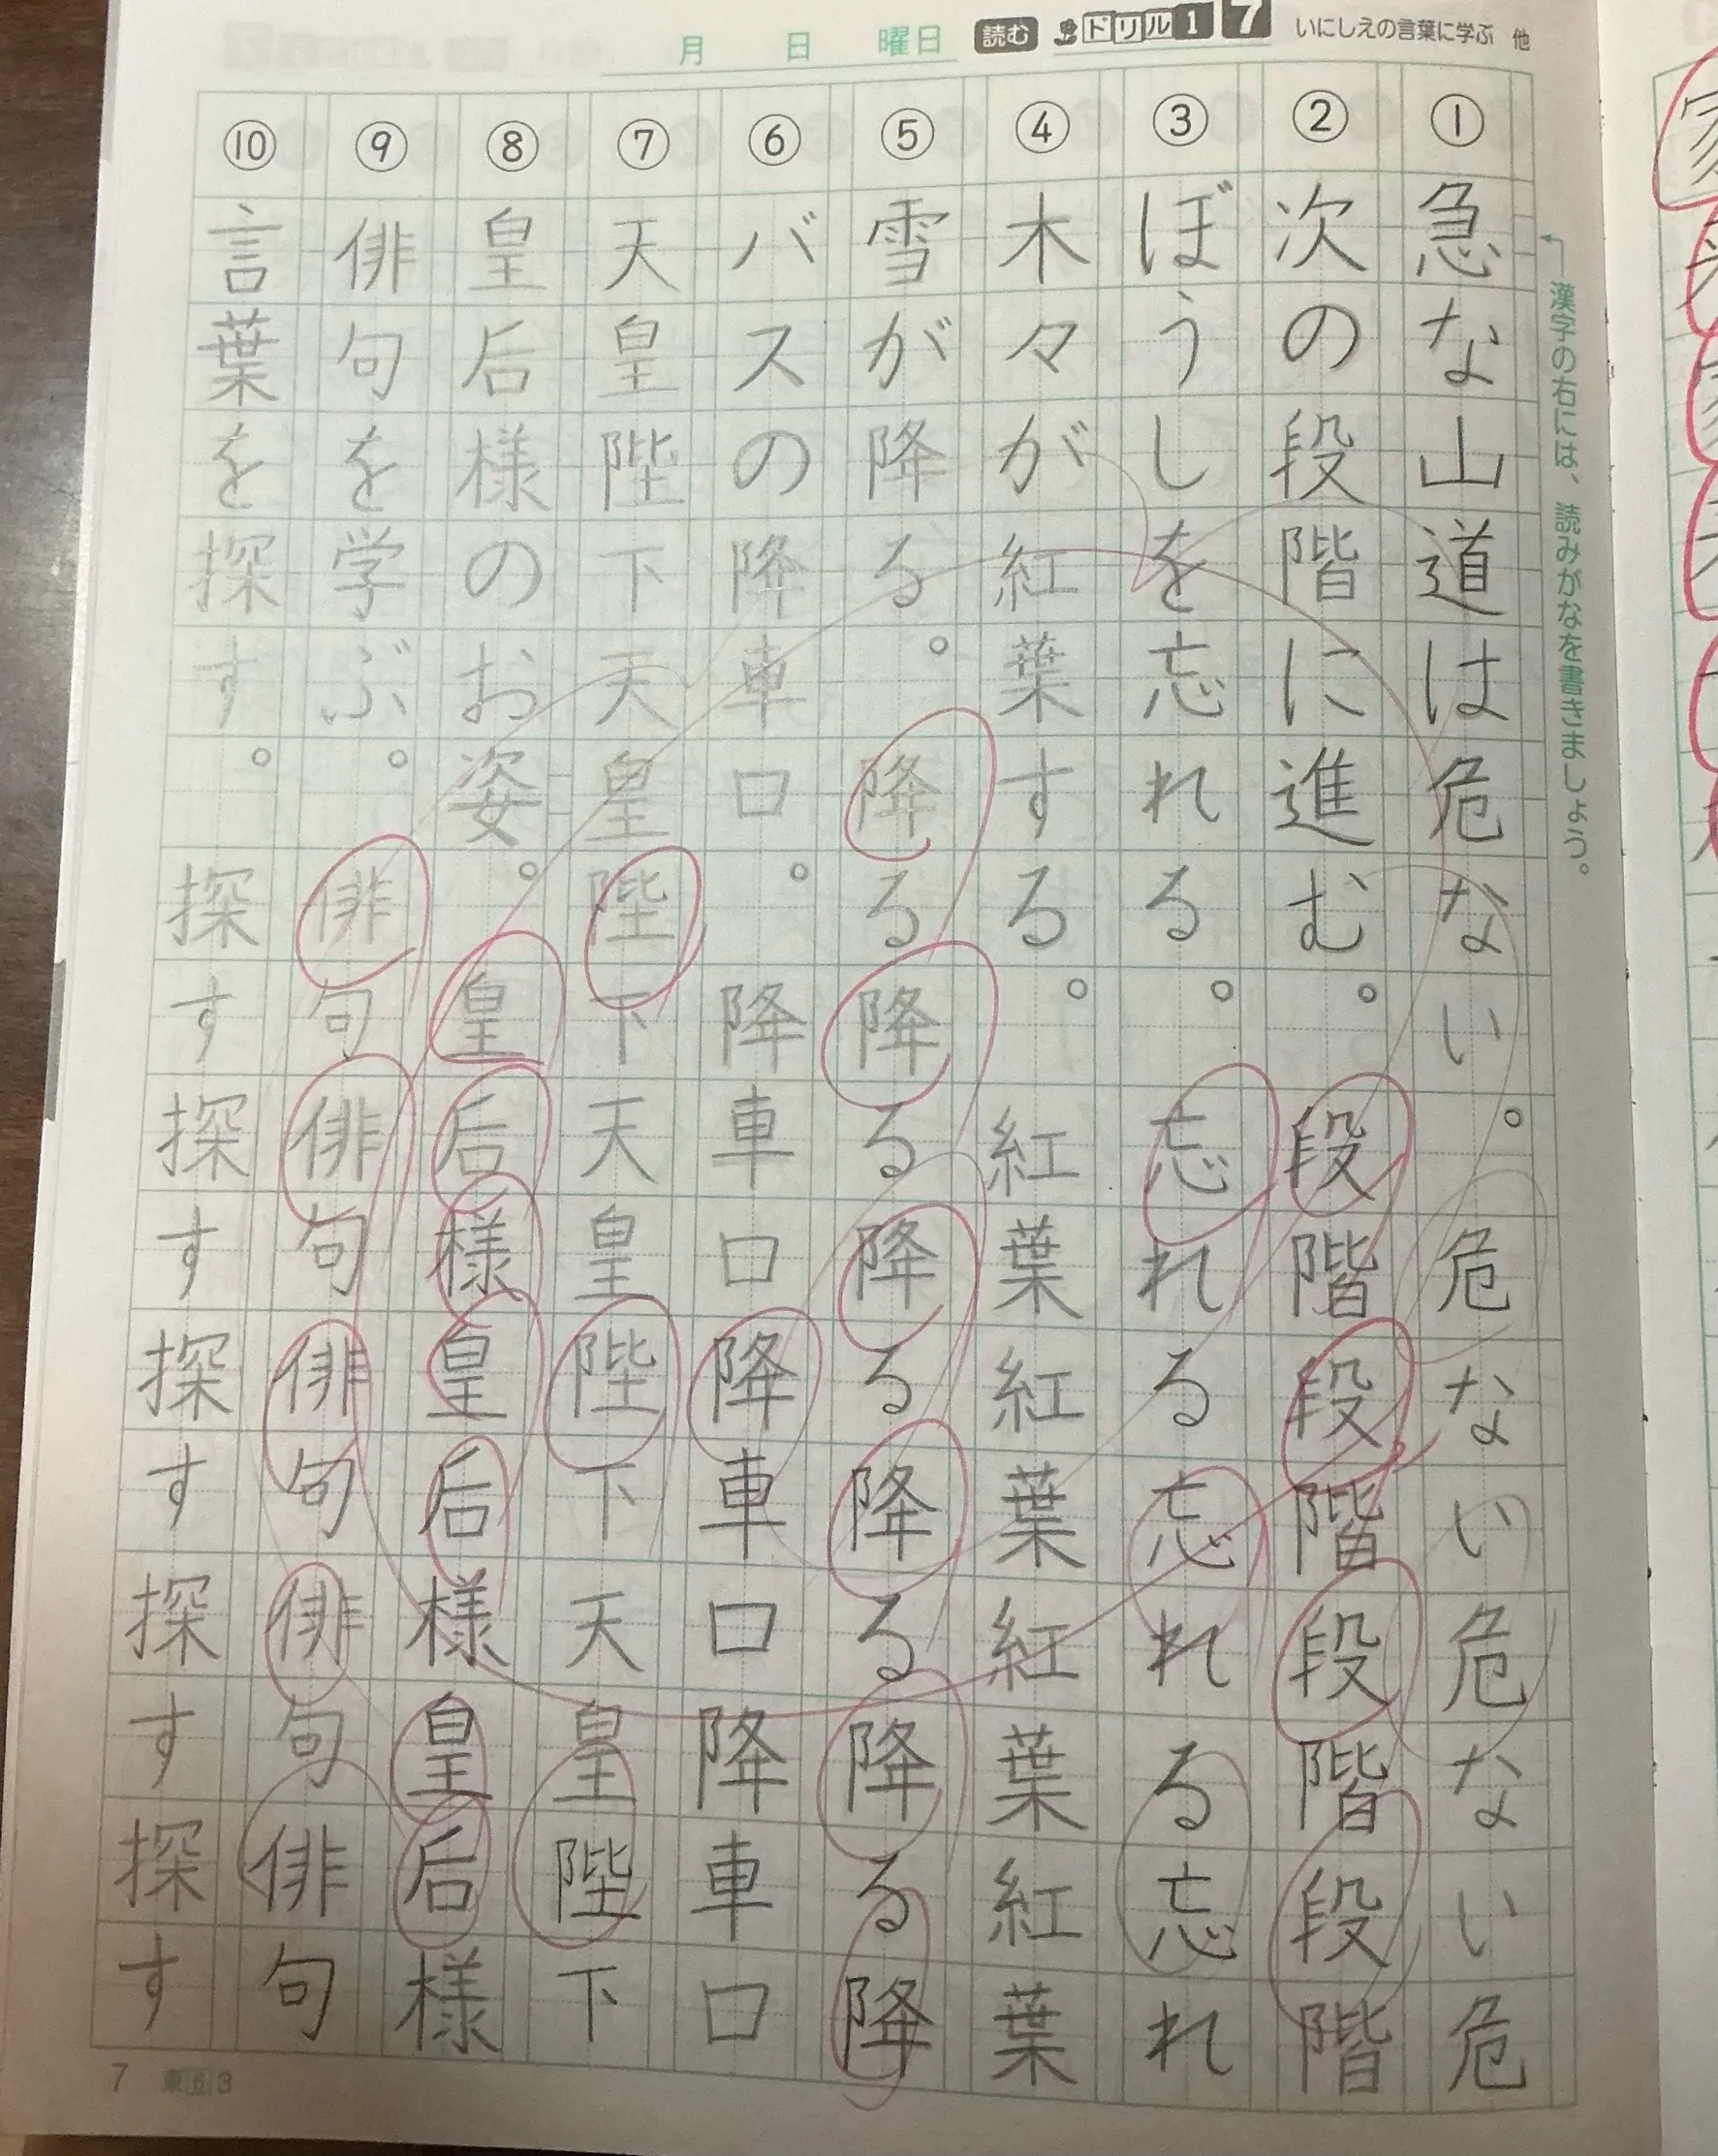 月 日 曜日 読む ドリル17 いにしえの言葉に学ぶ 他
漢字の右には、読みがなを書きましょう。
① 急な山道は危ない。危ない危ない危
② 次の段階に進む。段階段階段階段階
③ ぼうしを忘れる。忘れる忘れる忘れ
④ 木々が紅葉する。紅葉紅葉紅葉紅葉
⑤ 雪が降る。降る降る降る降る降る降
⑥ バスの降車口。降車口降車口降車口
⑦ 天皇陛下天皇陛下天皇陛下天皇陛下
⑧ 皇后様のお姿。皇后様皇后様皇后様
⑨ 俳句を学ぶ。俳句俳句俳句俳句俳句
⑩ 言葉を探す。探す探す探す探す探す
7 東⑥3